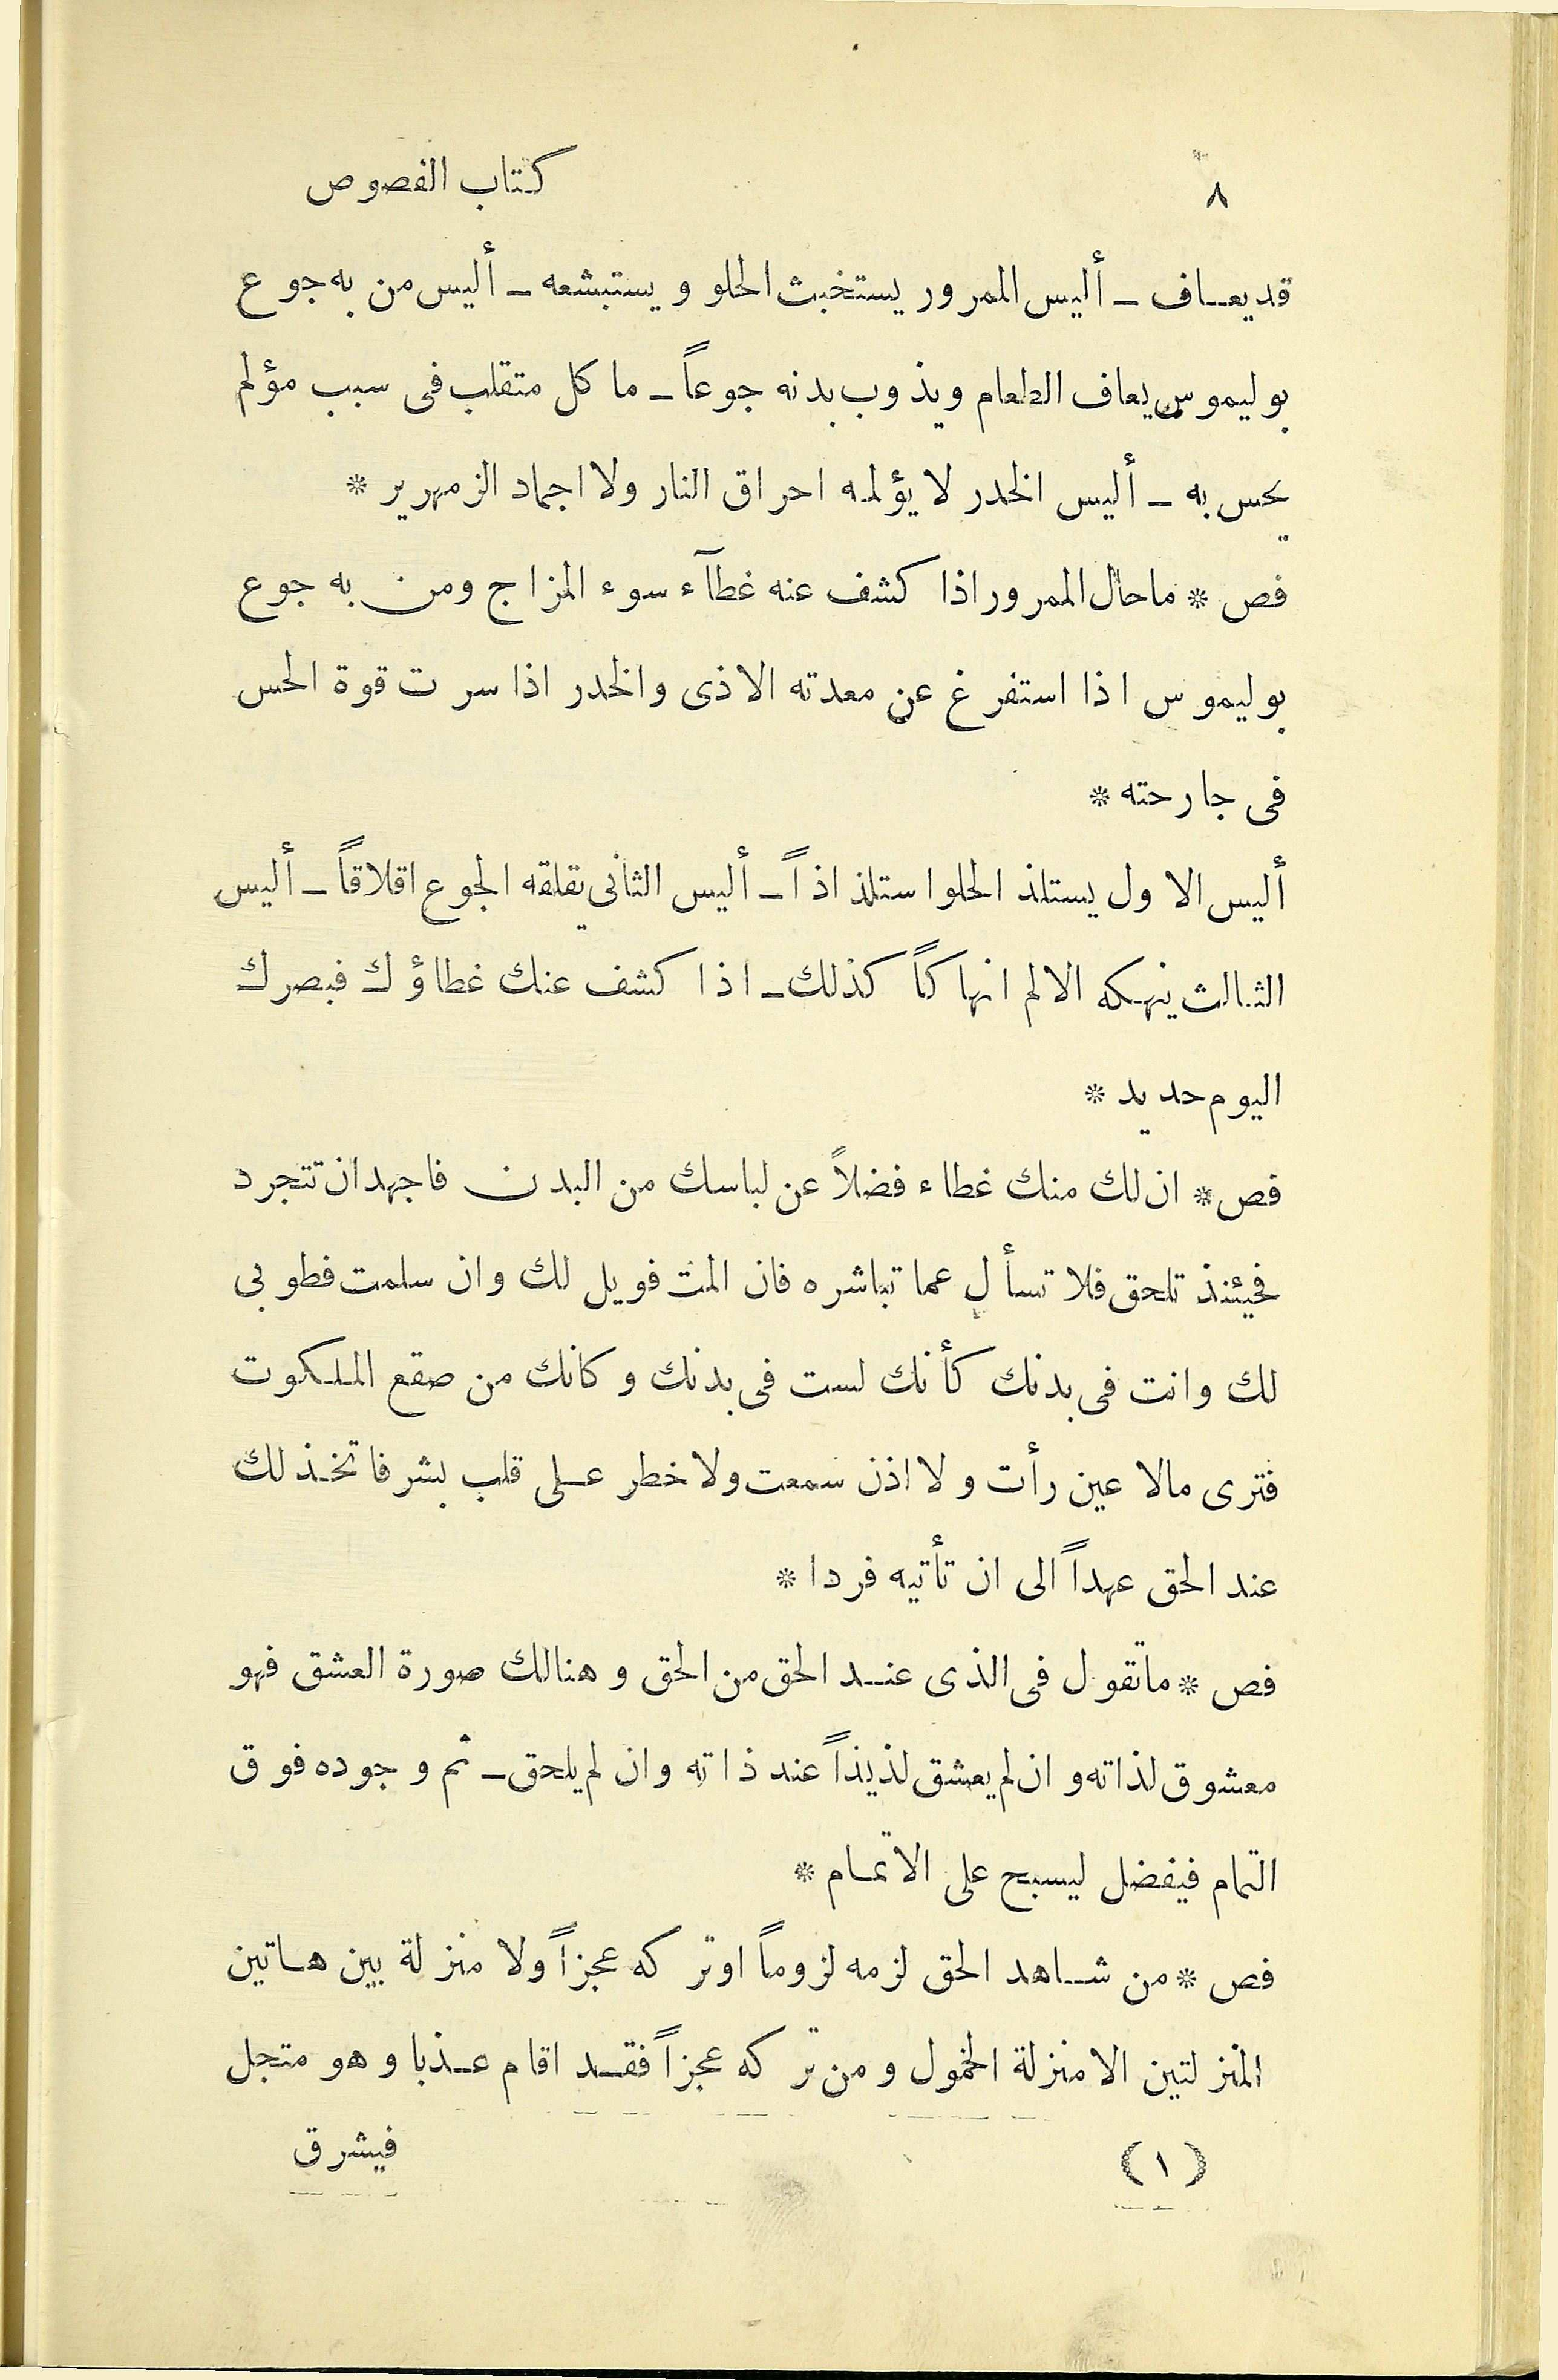 ٨ كتاب الفصوص
قد يعاف ـ أليس الممرور يستخبث الحلو و يستبشعه ـ أليس من به جوع
بوليموس يعاف الطعام ويذوب بدنه جوعاً ـ ما كل متقلب فى سبب مؤلم
يحس به ـ أليس الخدر لا يؤلمه احراق النار ولا اجماد الزمهرير *
فص * ماحال الممرور اذا كشف عنه غطآء سوء المزاج ومن به جوع
بوليموس اذا استفرغ عن معدته الاذى والخدر اذا سرت قوة الحس
فى جارحته *
أليس الاول يستلذ الحلو استلذاذاً ـ أليس الثانى يقلقه الجوع اقلاقاً ـ أليس
الثالث ينهكه الالم انهاكاً كذلك ـ اذا كشف عنك غطاؤك فبصرك
اليوم حديد *
فص * ان لك منك غطاء فضلاً عن لباسك من البدن فاجهد ان تتجرد
فحيئنذ تلحق فلا تسأل عما تباشره فان المت فويل لك وان سلمت فطوبى
لك وانت فى بدنك كأنك لست فى بدنك وكانك من صقع الملكوت
فترى مالا عين رأت و لا اذن سمعت ولا خطر على قلب بشر فاتخذ لك
عند الحق عهداً الى ان تأتيه فردا *
فص * ماتقول فى الذى عند الحق من الحق و هنالك صورة العشق فهو
معشوق لذاته و ان لم يعشق لذيذاً عند ذاته وان لم يلحق ـ ثم وجوده فوق
التمام فيفضل ليسبح على الاتمام *
فص * من شاهد الحق لزمه لزوماً اوتركه عجزاً ولا منزلة بين هاتين
المنزلتين الا منزلة الخمول و من تركه عجزاً فقد اقام عذبا و هو متجل
(١) فيشرق